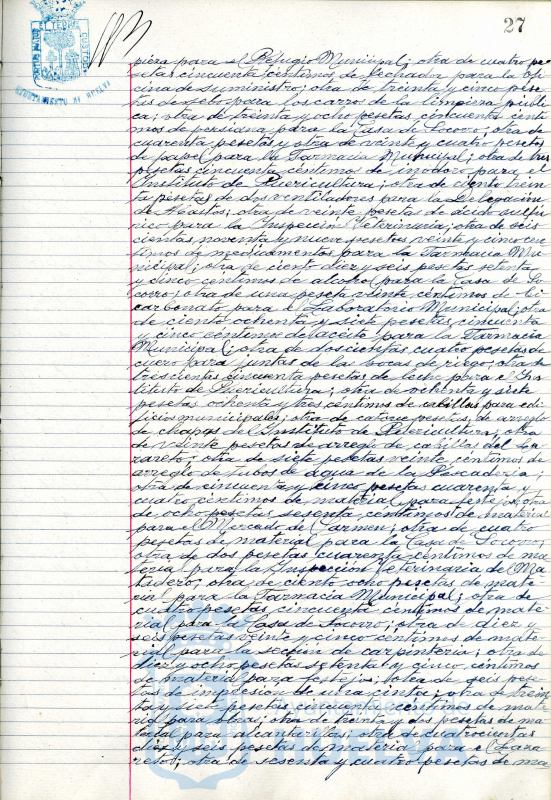 27
AYUNTAMIENTO DE HUELVA
pieza para el Refugio Municipal; otra de cuatro pe
setas cincuenta céntimos de flechador para la ofi
cina de suministro; otra de treinta y cinco pese
tas de sebo para los carros de la limpieza públi
ca; otra de treinta y ocho pesetas cincuenta cénti
mos de persiana para la Casa de Socorro; otra de
cuarenta pesetas y otra de veinte y cuatro pesetas
de papel para la Farmacia Municipal; otra de tres
pesetas cincuenta céntimos de inodoro para el
Instituto de Puericultura; otra de ciento trein
ta pesetas de dos ventiladores para la Delegación
de Abastos; otra de veinte pesetas de ácido sulfú
rico para la Inspección Veterinaria; otra de seis
cientas noventa y nueve pesetas veinte y cinco cén
timos de medicamentos para la Farmacia Mu
nicipal; otra de ciento diez y seis pesetas setenta
y cinco céntimos de alcohol para la Casa de So
corro; otra de una peseta veinte céntimos de bi
carbonato para el Laboratorio Municipal; otra
de ciento ochenta y siete pesetas cincuenta
y cinco céntimos de aceite para la Farmacia
Municipal; otra de doscientas cuatro pesetas de
cuero para juntas de las bocas de riego; otra de
trescientas cincuenta pesetas de leche para el Ins
tituto de Puericultura; otra de ochenta y siete
pesetas ochenta y tres céntimos de cabillas para edi
ficios municipales; otra de catorce pesetas de arreglo
de chapas del Instituto de Puericultura; otra
de veinte pesetas de arreglo de cabillas del La
zareto; otra de siete pesetas veinte céntimos de
arreglo de tubos de agua de la Pescadería;
otra de cincuenta y cinco pesetas cuarenta y
cuatro céntimos de material para festejos; otra
de ocho pesetas sesenta céntimos de material
para el Mercado del Carmen; otra de cuatro
pesetas de material para la Casa de Socorro;
otra de dos pesetas cuarenta céntimos de ma
terial para la Inspección Veterinaria de Ma
tadero; otra de ciento ocho pesetas de mate
rial para la Farmacia Municipal; otra de
cuatro pesetas cincuenta céntimos de mate
rial para la Casa de Socorro; otra de diez y
seis pesetas veinte y cinco céntimos de mate
rial para la sección de carpintería; otra de
diez y ocho pesetas setenta y cinco céntimos
de material para festejos; otra de seis pese
tas de impresión de una cinta; otra de trein
ta y siete pesetas cincuenta céntimos de mate
rial para obras; otra de treinta y dos pesetas de ma
terial para alcantarillas; otra de cuatrocientas
diez y seis pesetas de material para el Laza
reto; otra de sesenta y cuatro pesetas de ma